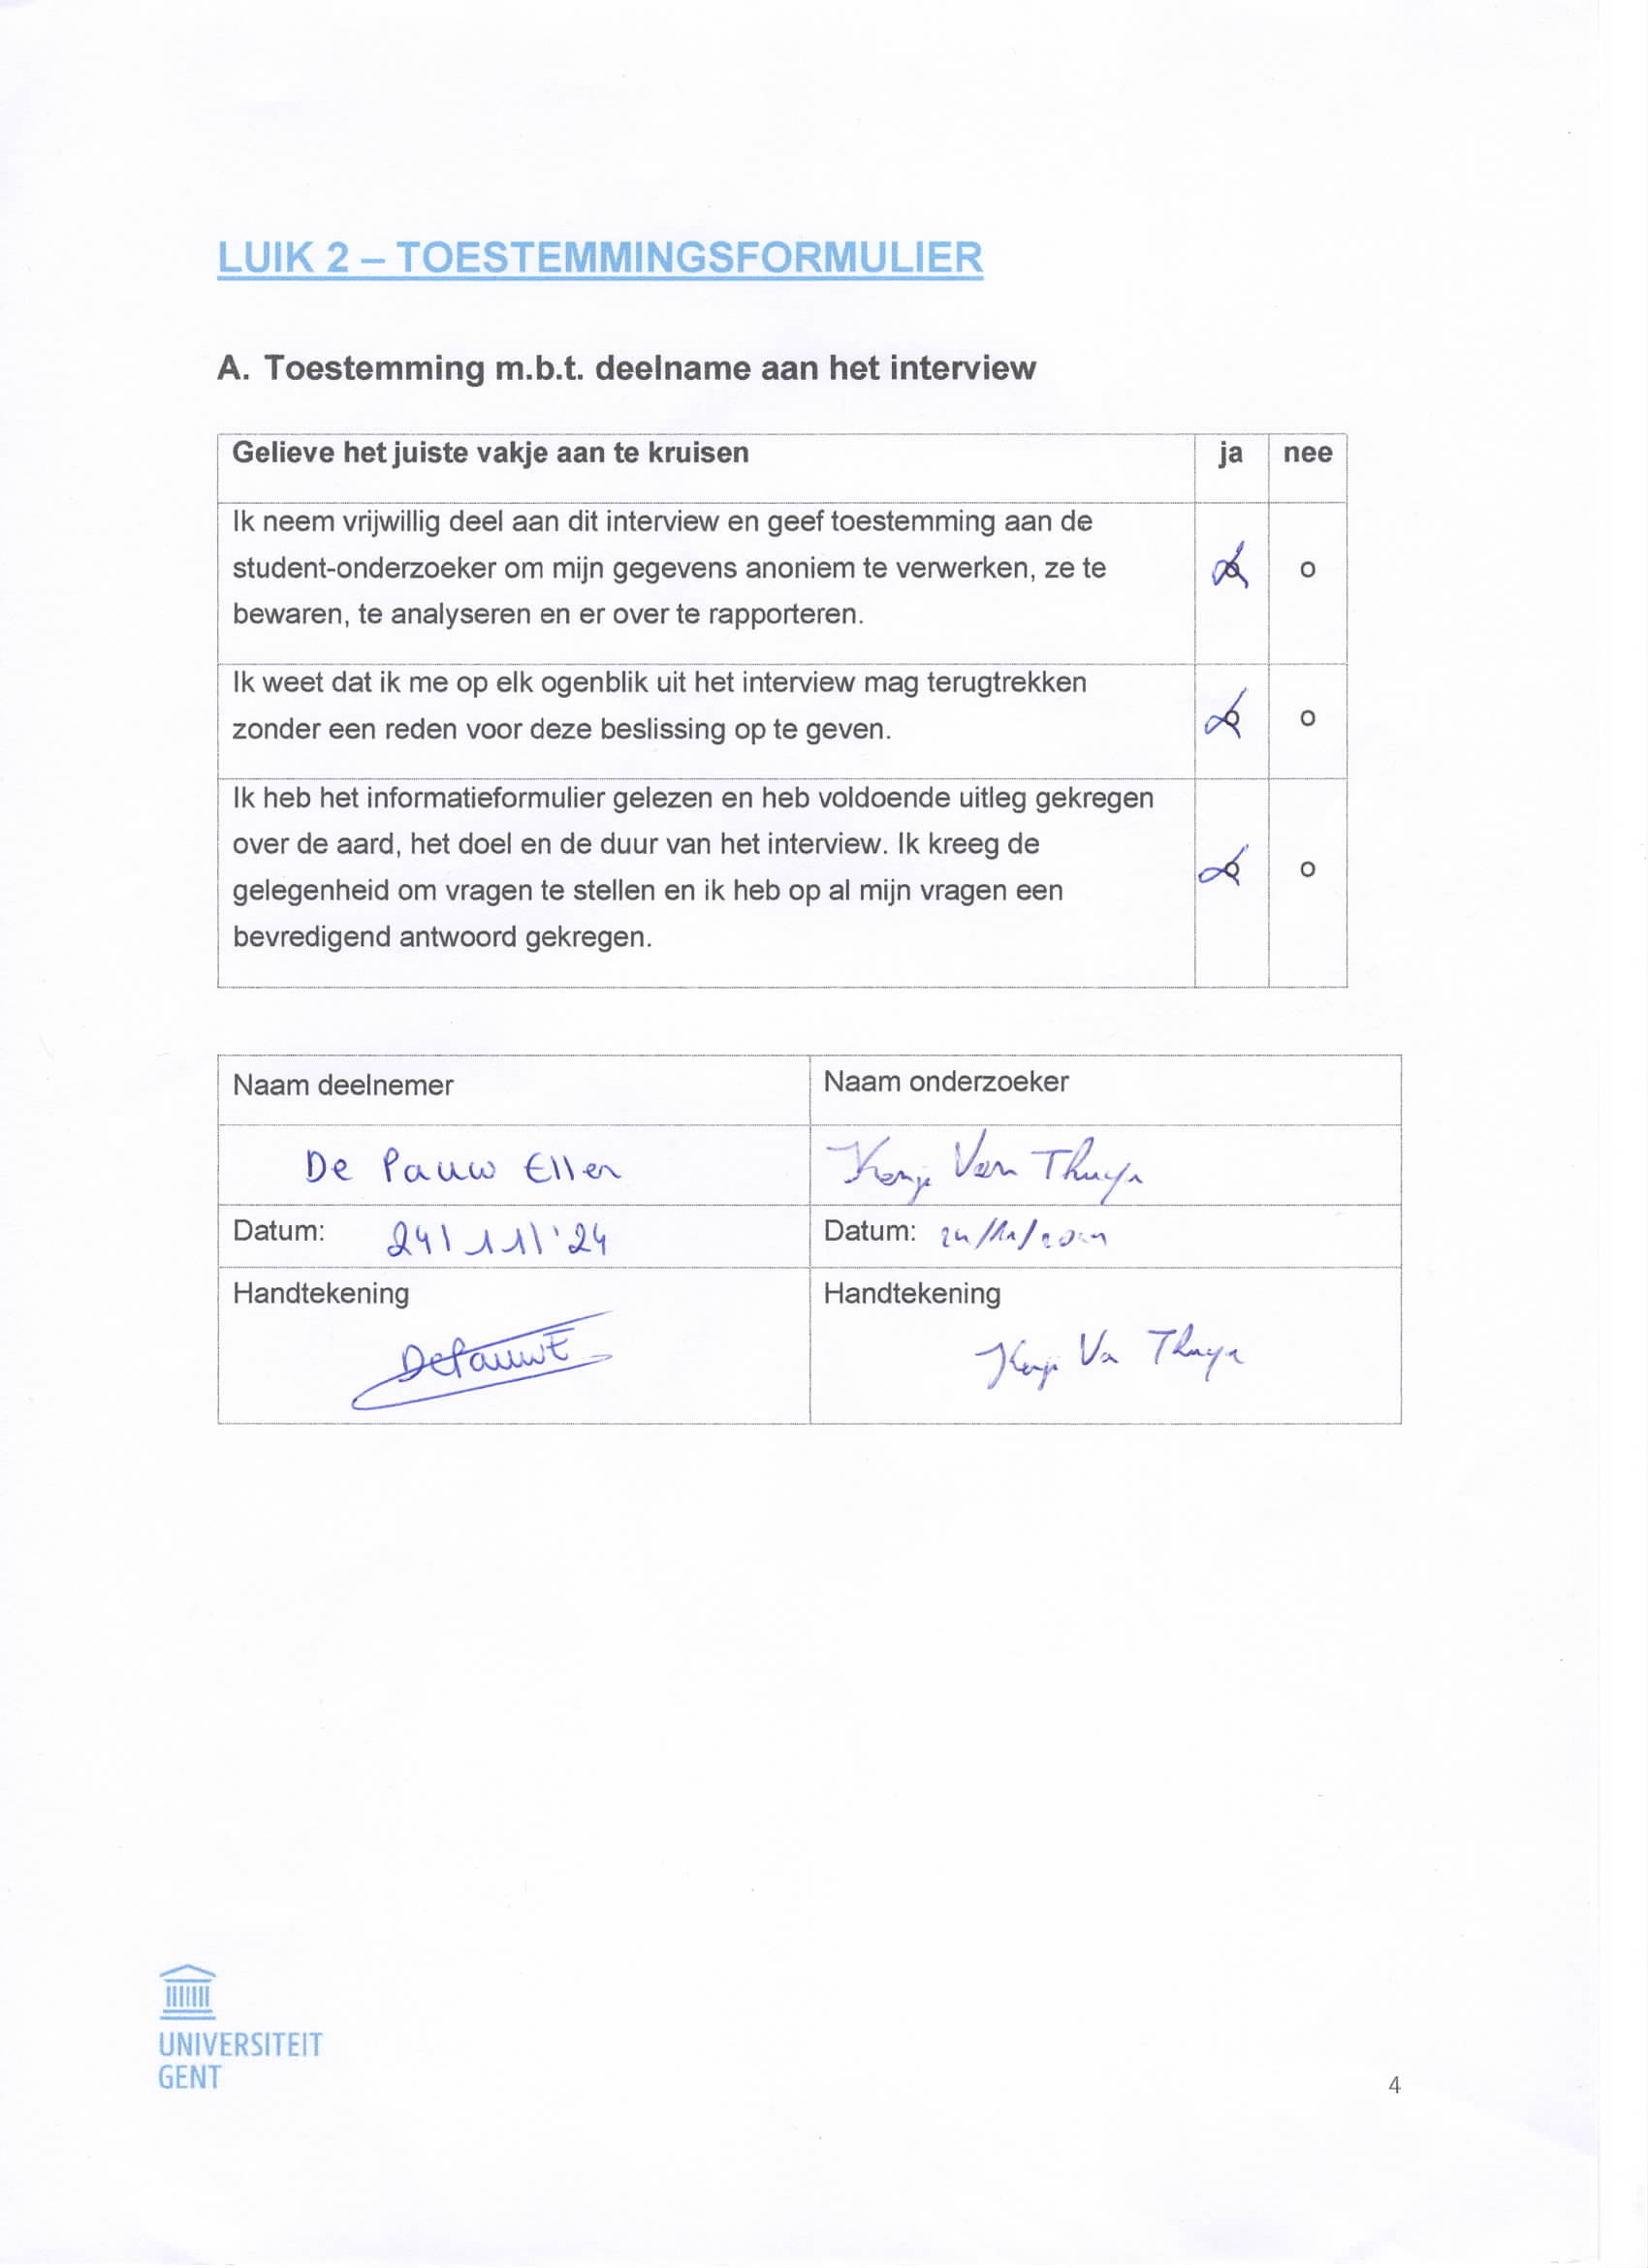 LUIK 2 – TOESTEMMINGSFORMULIER
A. Toestemming m.b.t. deelname aan het interview
Gelieve het juiste vakje aan te kruisen ja nee
Ik neem vrijwillig deel aan dit interview en geef toestemming aan de
student-onderzoeker om mijn gegevens anoniem te verwerken, ze te o
bewaren, te analyseren en er over te rapporteren.
Ik weet dat ik me op elk ogenblik uit het interview mag terugtrekken
zonder een reden voor deze beslissing op te geven. o
Ik heb het informatieformulier gelezen en heb voldoende uitleg gekregen
over de aard, het doel en de duur van het interview. Ik kreeg de
gelegenheid om vragen te stellen en ik heb op al mijn vragen een o
bevredigend antwoord gekregen.
Naam deelnemer Naam onderzoeker
De Pauw Ellen Van
Datum: 24\11\'24 Datum:
Handtekening Handtekening
DePauwE
UNIVERSITEIT
GENT
4